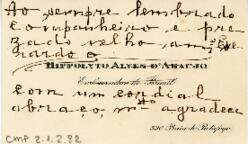 Ao sempre lembrado
companheiro e pre-
zado velho, am.º Ber-
nardo o
HIPPOLYTO ALVES D'ARAUJO
com um cordial
abraço, m.to agradece
530 Praia de Botafogo
CMP 2.1.2.92